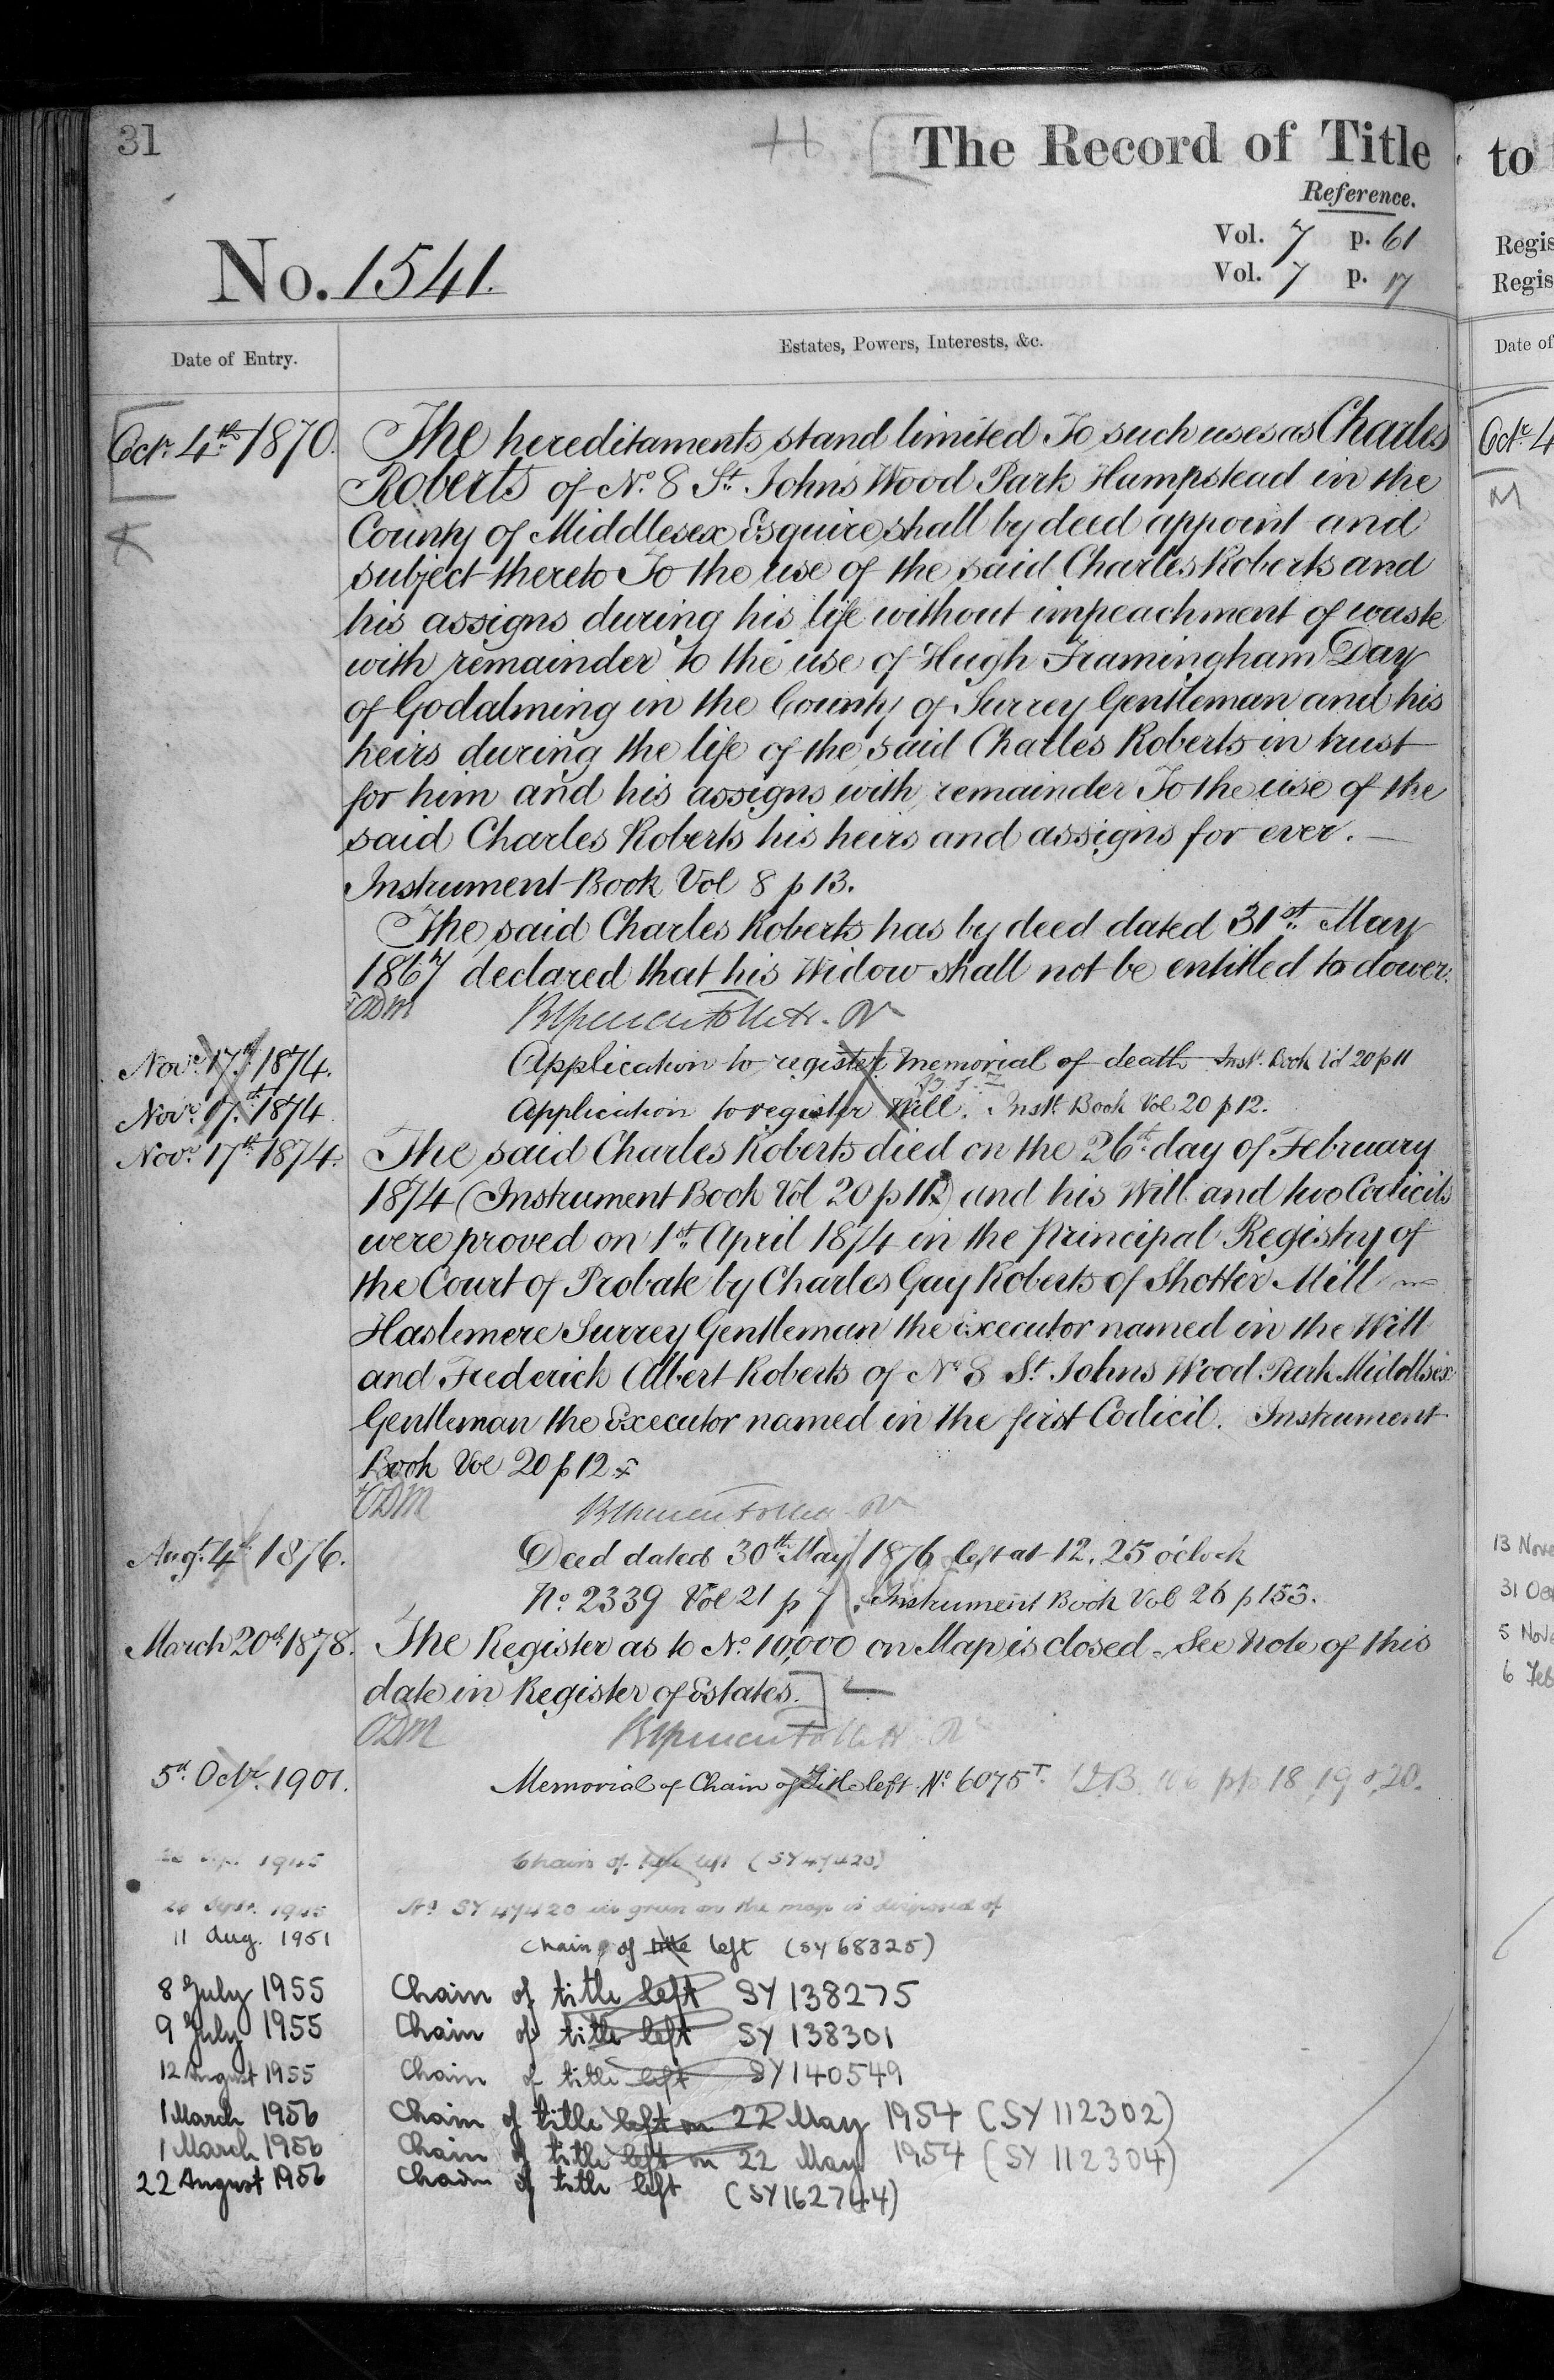 31
H
The Record of Title
to
Reference.
No. 1541.
Vol. 7 p. 61
Vol. 7 p. 17
Regis
Regis
Date of Entry.
Estates, Powers, Interests, &c.
Date of
Octr. 4th 1870. The hereditaments stand limited To such uses as Charles
Octr. 4
Roberts of No. 8 St. Johns Wood Park Hampstead in the
M
County of Middlesex Esquire shall by deed appoint and
subject thereto To the use of the said Charles Roberts and
his assigns during his life without impeachment of waste
with remainder to the use of Hugh Framingham Day
of Godalming in the County of Surrey Gentleman and his
heirs during the life of the said Charles Roberts in trust
for him and his assigns with remainder To the use of the
said Charles Roberts his heirs and assigns for ever. —
Instrument Book Vol 8 p 13.
The said Charles Roberts has by deed dated 31st. May
1867 declared that his Widow shall not be entitled to dower.
ODM
Novr. 17th. 1874. Application to register Memorial of death Inst. Book Vol 20 p 11
Novr. 17th. 1874 Application to register Will. Instt. Book Vol 20 p 12.
Novr. 17th 1874. The said Charles Roberts died on the 26th day of February
1874 (Instrument Book Vol 20 p 11) and his Will and two Codicils
were proved on 1st. April 1874 in the Principal Registry of
the Court of Probate by Charles Guy Roberts of Shotter Mill
Haslemere Surrey Gentleman the Executor named in the Will
and Frederick Albert Roberts of No 8 St. Johns Wood Park Middlsix
Gentleman the Executor named in the first Codicil. Instrument
Book Vol 20 p 12
ODM
Augt. 4th 1876. Deed dated 30th May 1876 left at 12.25 o'clock
13 Nove
No. 2339 Vol 21 p 7. Instrument Book Vol 26 p 153.
31 Oct
March 20th 1878. The Register as to No. 10,000 on Map is closed - See Note of this
5 Nove
date in Register of Estates.
6 Feb
ODM
5th. Octr. 1901. Memorial of Chain of Title left. No 6075T. I.B. 106 pp 18, 19 & 20.
1945 Chain of title left (SY 47420)
26 Sept. 1945 No SY 47420 in green on the map is disposed of
11 Aug. 1951 Chain of title left (SY 68325)
8 July 1955 Chain of title left SY 138275
9 July 1955 Chain of title left SY 138301
12 August 1955 Chain of title left SY 140549
1 March 1956 Chain of title left on 22 May 1954 (SY 112302)
1 March 1956 Chain of title left on 22 May 1954 (SY 112304)
22 August 1956 Chain of title left (SY 162744)